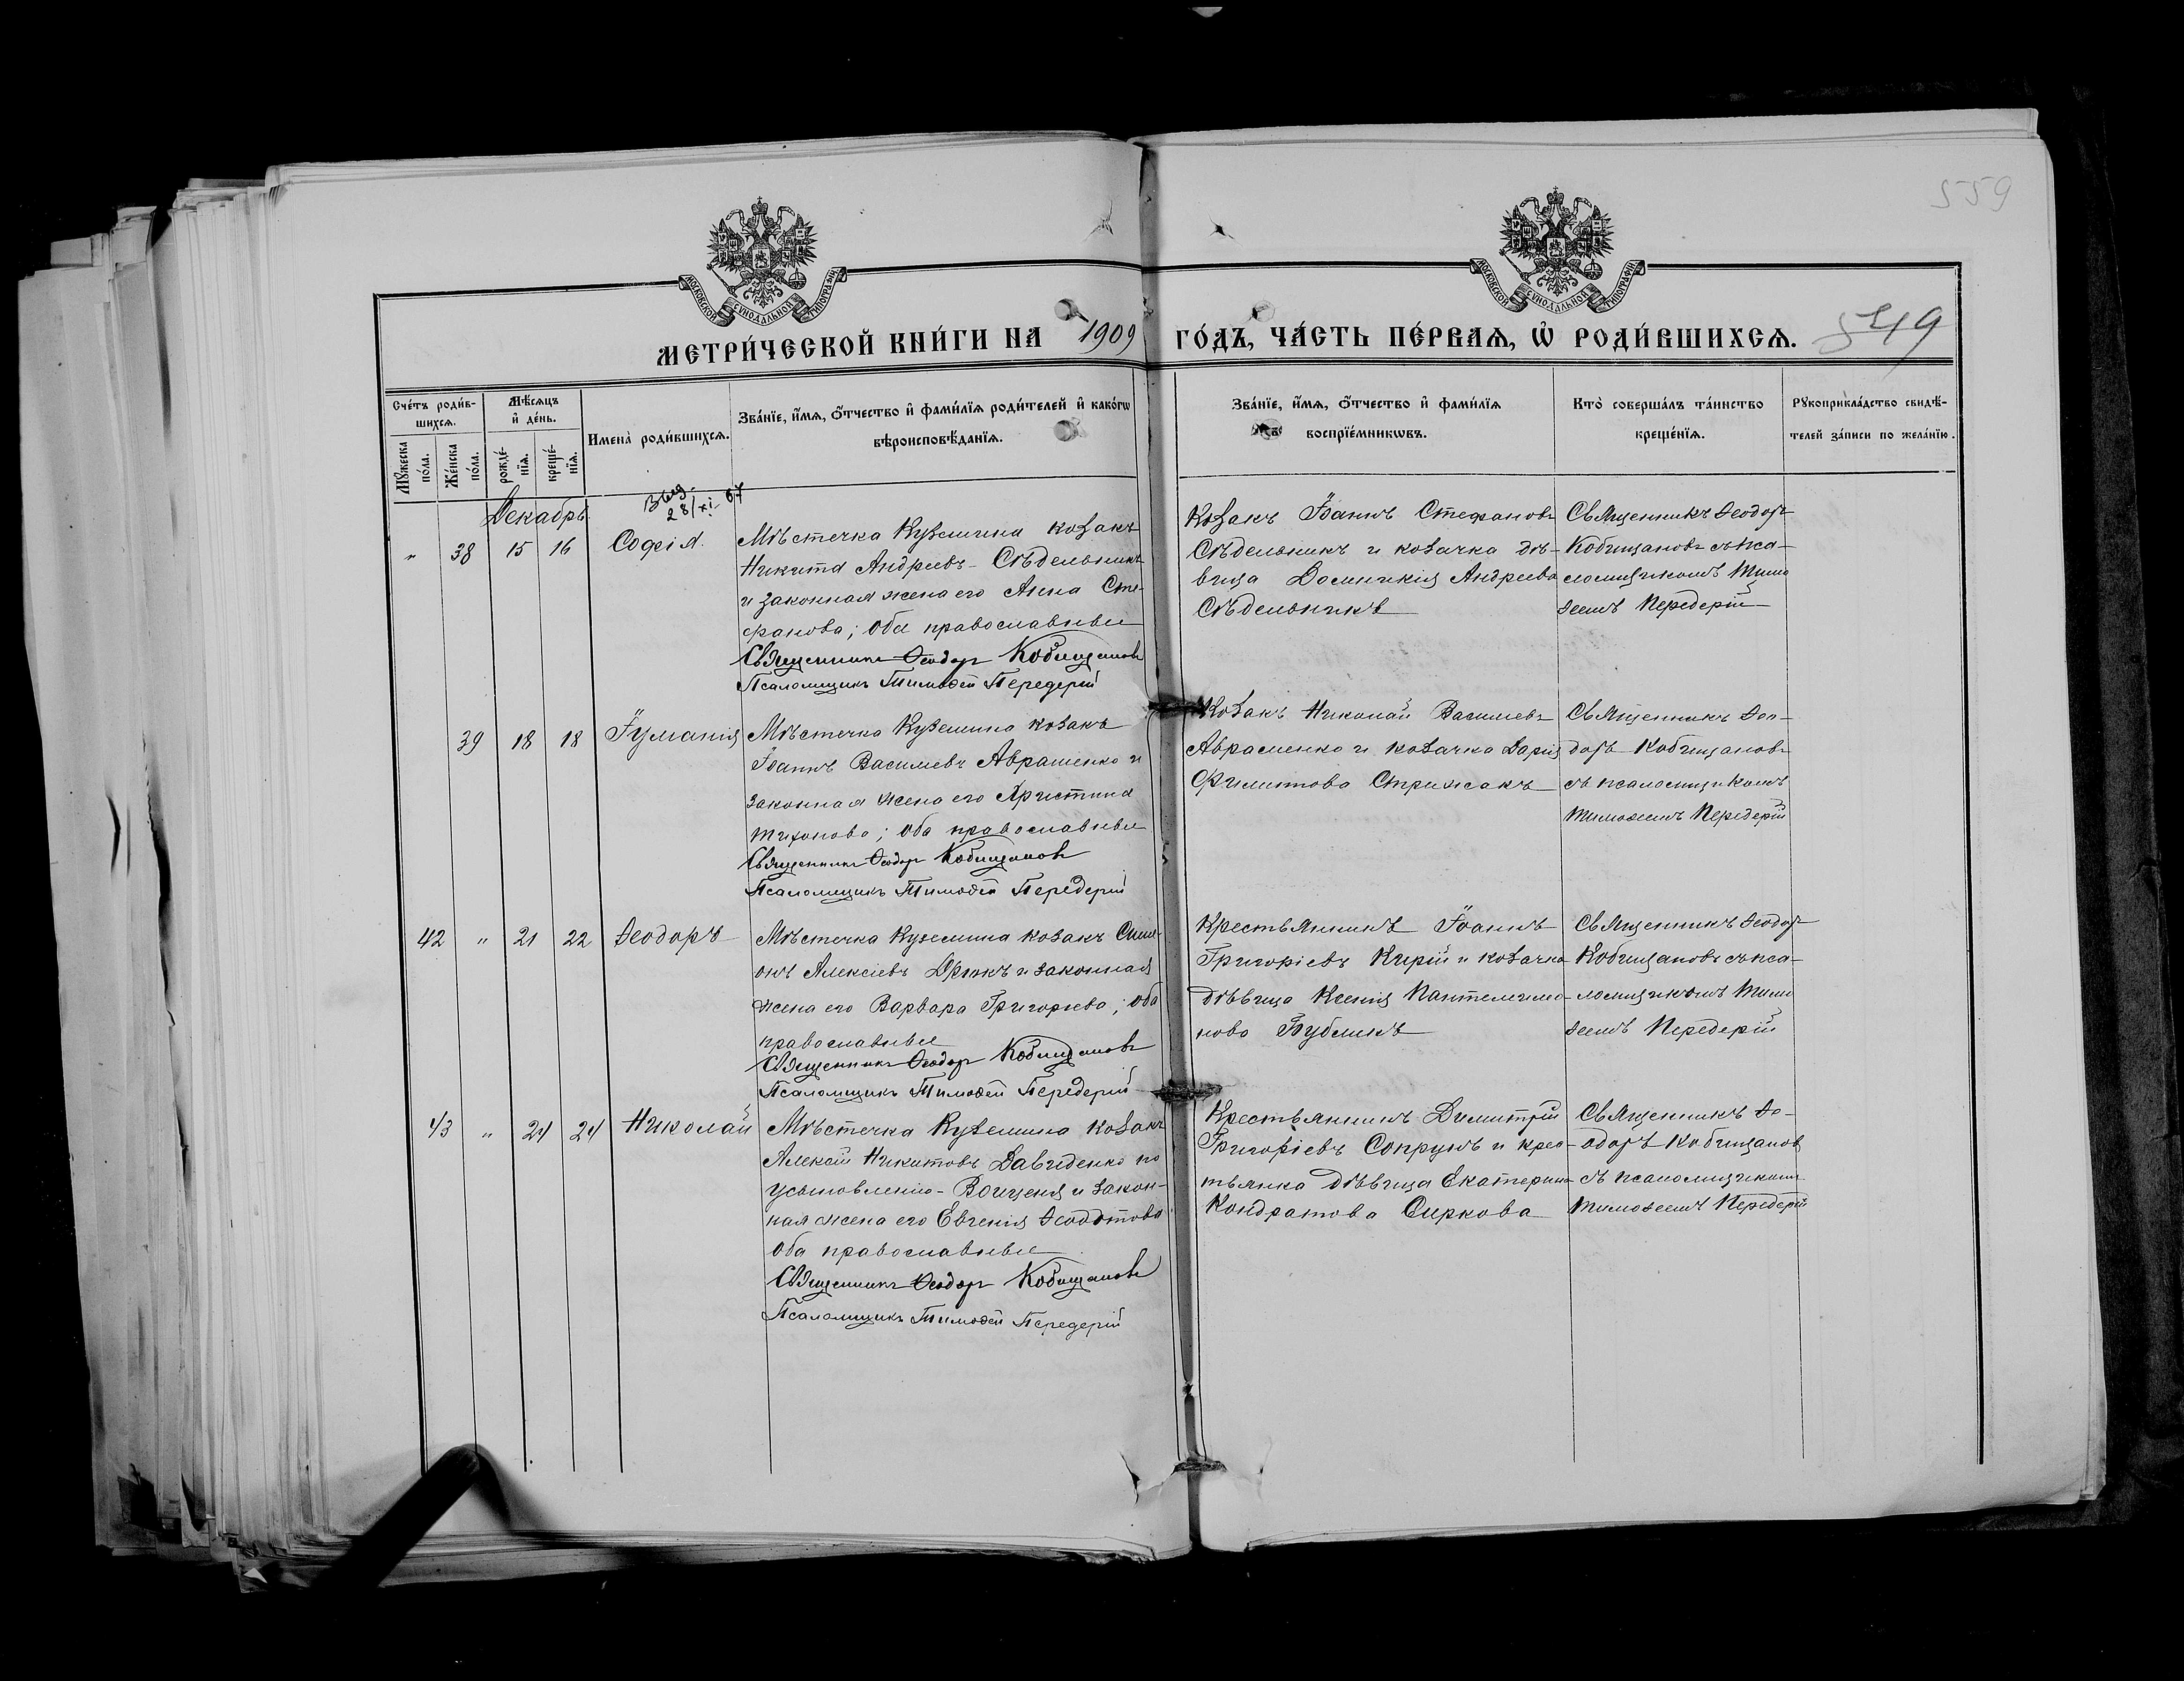 559
МОСКОВСКОЙ СѴНОДАЛЬНОЙ ТИПОГРАФІИ
МОСКОВСКОЙ СѴНОДАЛЬНОЙ ТИПОГРАФІИ
МЕТРИ́ЧЕСКОЙ КНИ́ГИ НА 1909 ГО́ДЪ, ЧА́СТЬ ПЕ́РВАѦ, Ѡ҆ РОДИ́ВШИХСѦ. 549
Сче́тъ роди́в-
шихсѧ.
Мꙋ́жеска по́ла.
Же́нска по́ла.
Мѣ́сѧцъ и҆ де́нь.
рожде́-нїѧ.
креще́-нїѧ.
Имена̀ роди́вшихсѧ.
Зва́нїе, и҆́мѧ, ѻ҆́тчество и҆ фами́лїѧ роди́телей и҆ како́гѡ
вѣроисповѣ́данїѧ.
Зва́нїе, и҆́мѧ, ѻ҆́тчество и҆ фами́лїѧ
воспрїе́мникѡвъ.
Кто̀ соверша́лъ та́инство
креще́нїѧ.
Рꙋкоприкла́дство свидѣ́-
телей за́писи по жела́нїю.
Декабрь
28/XI 67
" 38 15 16 Софія.
Мѣстечка Куземина козакъ
Никита Андреевъ Сѣдельникъ
и законная жена его Анна Сте-
фанова; оба православные
Священникъ Ѳеодоръ Кобищановъ
Псаломщикъ Тимоѳей Передерій
Козакъ Іоаннъ Стефановъ
Сѣдельникъ и козачка дѣ-
вица Домникія Андреева
Сѣдельникъ
Священникъ Ѳеодоръ
Кобищановъ съ пса-
ломщикомъ Тимо
ѳеемъ Передерій
39 18 18 Іуліанія
Мѣстечка Куземина козакъ
Іоаннъ Василіевъ Авраменко и
законная жена его Христина
Тихонова; оба православные
Священникъ Ѳеодоръ Кобищановъ
Псаломщикъ Тимоѳей Передерій
Козакъ Николай Василіевъ
Авраменко и козачка Дарія
Филиппова Стрижакъ
Священникъ Ѳео-
доръ Кобищановъ
съ псаломщикомъ
Тимоѳеемъ Передерій
42 " 21 22 Ѳеодоръ
Мѣстечка Куземина козакъ Сим-
онъ Алексіевъ Дрюкъ и законная
жена его Варвара Григорьева; оба
православные
Священникъ Ѳеодоръ Кобищановъ
Псаломщикъ Тимоѳей Передерій
Крестьянинъ Іоаннъ
Григоріевъ Кирій и козачка
дѣвица Ксенія Пантелеимо-
нова Бубликъ
Священникъ Ѳеодоръ
Кобищановъ съ пса-
ломщикомъ Тимо
ѳеемъ Передерій
43 " 24 24 Николай
Мѣстечка Куземина козакъ
Алексій Никитовъ Давиденко по
усыновленію - Воищеня и закон-
ная жена его Евгенія Ѳеодотова
оба православные
Священникъ Ѳеодоръ Кобищановъ
Псаломщикъ Тимоѳей Передерій
Крестьянинъ Димитрій
Григоріевъ Сопрунъ и крес-
тьянка дѣвица Екатерина
Кондратова Сиркова
Священникъ Ѳе-
одоръ Кобищановъ
съ псаломщикомъ
Тимоѳеемъ Передерій